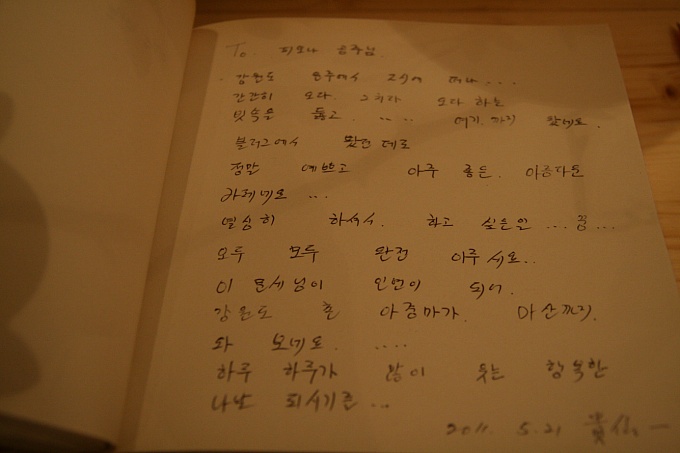 To. 피오나 공주님.
강원도 원주에서 2시에 떠나...
간간히 오다. 그치다 오다 하는
빗속을 뚫고..... 여기. 까지 왔네요.
블러그에서 봤던 데로
정말 예쁘고 아주 좋은. 아름다운
카페네요...
열심히 하셔서. 하고 싶은일... 꿈...
모두 모두 완전 이루시요..
이 인연이 되어.
강원도 촌 아줌마가. 마산까지.
와 보네요. ....
하루 하루가 많이 웃는 행복한
나날 되시기를...
2011. 5. 21